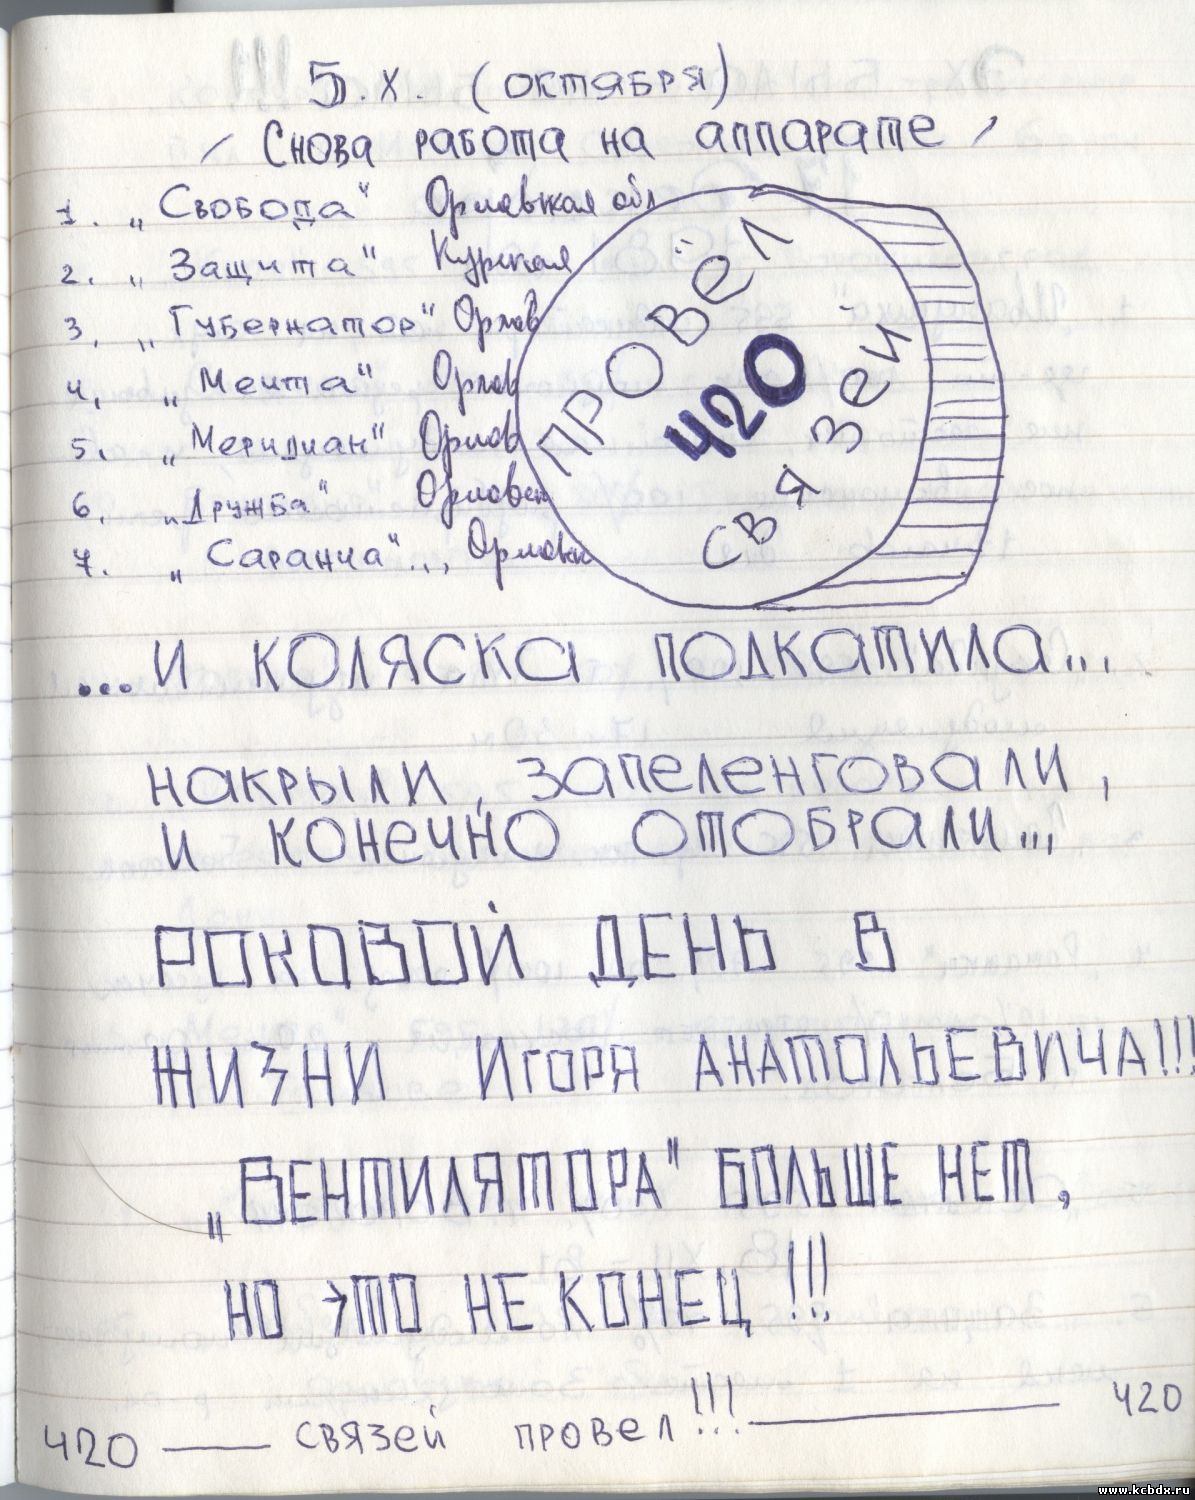 5.X. (октября)
/ Снова работа на аппарате /
1. „Свобода" Орловская обл
2. „Защита" Курская
3. „Губернатор" Орлов
4. „Мечта" Орлов
5. „Меридиан" Орлов
6. „Дружба" Орловск
7. „Саранча"... Орловск
ПРОВЁЛ
420
СВЯЗЕЙ
...И КОЛЯСКА ПОДКАТИЛА...
НАКРЫЛИ, ЗАПЕЛЕНГОВАЛИ,
И КОНЕЧНО ОТОБРАЛИ...
РОКОВОЙ ДЕНЬ В
ЖИЗНИ ИГОРЯ АНАТОЛЬЕВИЧА!!!
„ВЕНТИЛЯТОРА" БОЛЬШЕ НЕТ,
НО ЭТО НЕ КОНЕЦ!!!
420 — СВЯЗЕЙ ПРОВЕЛ!!! — 420
www.kcbdx.ru